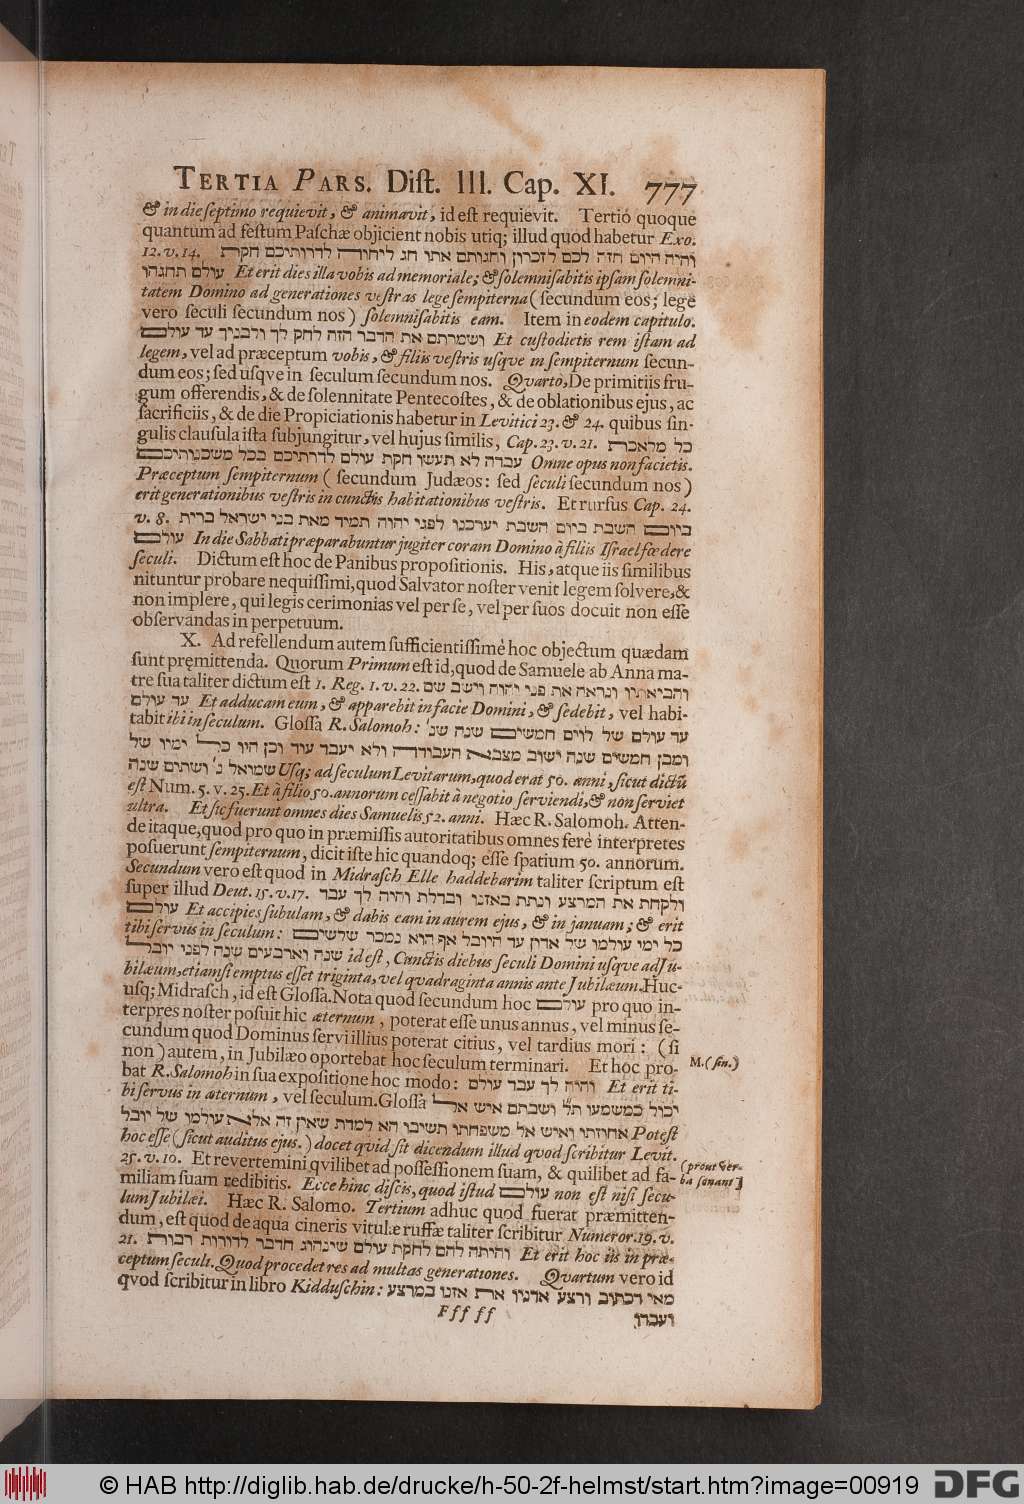 TERTIA PARS. Dist. III. Cap. XI. 777
& in die septimo requievit, & animavit, id est requievit. Tertiò quoque
quantum ad festum Paschæ objicient nobis utiq; illud quod habetur Exo.
12. v. 14. והיה היום הזה לכם לזכרון וחגותם אתו חג ליהוה לדרותיכם חקת
עולם תחגהו Et erit dies illa vobis ad memoriale; & solemnisabitis ipsam solemni-
tatem Domino ad generationes vestras lege sempiterna (secundum eos; lege
vero seculi secundum nos) solemnisabitis eam. Item in eodem capitulo.
ושמרתם את הדבר הזה לחק לך ולבניך עד עולם Et custodietis rem istam ad
legem, vel ad præceptum vobis, & filiis vestris usqve in sempiternum secun-
dum eos; sed usqve in seculum secundum nos. Qvartò, De primitiis fru-
gum offerendis, & de solennitate Pentecostes, & de oblationibus ejus, ac
sacrificiis, & de die Propiciationis habetur in Levitici 23. & 24. quibus sin-
gulis clausula ista subjungitur, vel hujus similis, Cap. 23. v. 21. כל מלאכת
עבדה לא תעשו חקת עולם לדרתיכם בכל משבותיכם Omne opus non facietis.
Præceptum sempiternum (secundum Judæos: sed seculi secundum nos)
erit generationibus vestris in cunctis habitationibus vestris. Et rursus Cap. 24.
v. 8. ביום השבת ביום השבת יערכנו לפני יהוה תמיד מאת בני ישראל ברית
עולם In die Sabbati præparabuntur jugiter coram Domino à filiis Israel fœdere
seculi. Dictum est hoc de Panibus propositionis. His, atque iis similibus
nituntur probare nequissimi, quod Salvator noster venit legem solvere, &
non implere, qui legis cerimonias vel per se, vel per suos docuit non esse
observandas in perpetuum.
X. Ad refellendum autem sufficientissimè hoc objectum quædam
sunt pręmittenda. Quorum Primum est id, quod de Samuele ab Anna ma-
tre sua taliter dictum est 1. Reg. 1. v. 22. והביאתיו ונראה את פני יהוה וישב שם
עד עולם Et adducam eum, & apparebit in facie Domini, & sedebit, vel habi-
tabit ibi in seculum. Glossa R. Salomoh: עד עולם של לוים חמשים שנה שנ'
ומבן חמשים שנה ישוב מצבא העבודה ולא יעבד עוד וכן היו כל ימיו של
שמואל נ' ושתים שנה Usq; ad seculum Levitarum, quod erat 50. anni, sicut dictū
est Num. 5. v. 25. Et à filio 50. annorum cessabit à negotio serviendi, & non serviet
ultra. Et sic fuerunt omnes dies Samuelis 52. anni. Hæc R. Salomoh. Atten-
de itaque, quod pro quo in præmissis autoritatibus omnes ferè interpretes
posuerunt sempiternum, dicit iste hic quandoq; esse spatium 50. annorum.
Secundum vero est quod in Midrasch Elle haddebarim taliter scriptum est
super illud Deut. 15. v. 17. ולקחת את המרצע ונתת באזנו ובדלת והיה לך עבד
עולם Et accipies subulam, & dabis eam in aurem ejus, & in januam; & erit
tibi servus in seculum: כל ימי עולמו של אדון עד היובל אף הוא נמכר שלשים
שנה וארבעים שנה לפני יובל id est, Cunctis diebus seculi Domini usqve ad Ju-
bilæum, etiamsi emptus esset triginta, vel qvadraginta annis ante Jubilæum. Huc-
usq; Midrasch, id est Glossa. Nota quod secundum hoc עולם pro quo in-
terpres noster posuit hic æternum, poterat esse unus annus, vel minus se-
cundum quod Dominus servi illius poterat citius, vel tardius mori: (si
non) autem, in Jubilæo oportebat hoc seculum terminari. Et hoc pro- M. (sin.)
bat R. Salomoh in sua expositione hoc modo: והיה לך עבד עולם Et erit ti-
bi servus in æternum, vel seculum. Glossa יכול כמשמעו תל' ושבתם איש אל
אחוזתו ואיש אל משפחתו תשיבו הא למדת שאין זה אלא עולמו של יובל Potest
hoc esse (sicut auditus ejus.) docet qvid sit dicendum illud qvod scribitur Levit. (prout Ver-
25. v. 10. Et revertemini qvilibet ad possessionem suam, & quilibet ad fa- ba sonant]
miliam suam redibitis. Ecce hinc discis, quod istud עולם non est nisi secu-
lum Jubilæi. Hæc R. Salomo. Tertium adhuc quod fuerat præmitten-
dum, est quod de aqua cineris vitulæ ruffæ taliter scribitur Numeror. 19. v.
21. והיתה להם לחקת עולם שינהוג הדבר לדורות רבות Et erit hoc iis in præ-
ceptum seculi. Quod procedet res ad multas generationes. Qvartum vero id
qvod scribitur in libro Kidduschin: מאי דכתיב ורצע אדניו את אזנו במרצע
Fff ff ועבדו
© HAB http://diglib.hab.de/drucke/h-50-2f-helmst/start.htm?image=00919 DFG